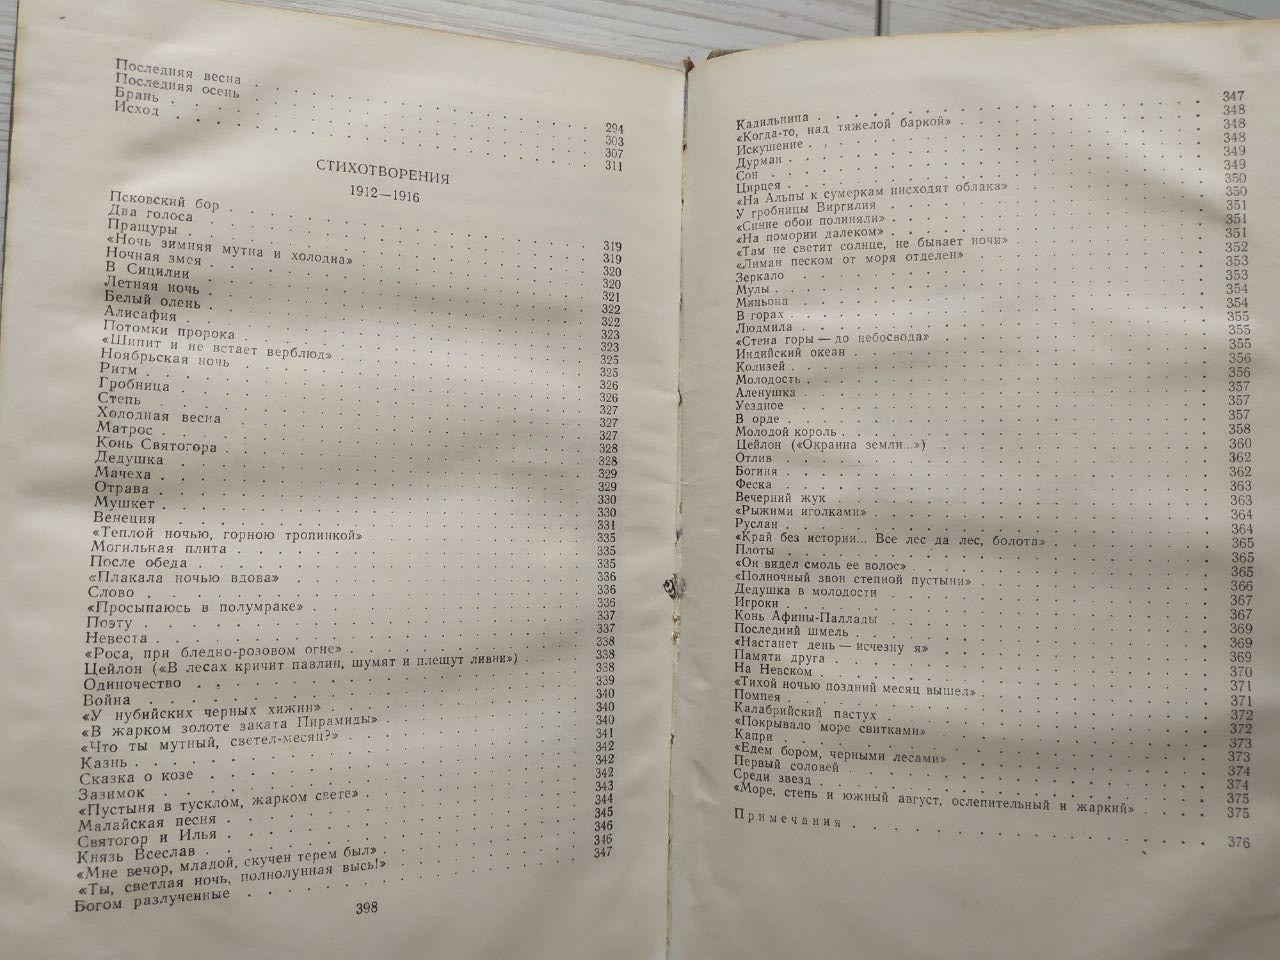 Последняя весна . . . 294
Последняя осень . . . 303
Брань . . . 307
Исход . . . 311
СТИХОТВОРЕНИЯ
1912—1916
Псковский бор . . . 319
Два голоса . . . 319
Пращуры . . . 320
«Ночь зимняя мутна и холодна» . . . 320
Ночная змея . . . 321
В Сицилии . . . 322
Летняя ночь . . . 322
Белый олень . . . 323
Алисафия . . . 323
Потомки пророка . . . 325
«Шипит и не встает верблюд» . . . 325
Ноябрьская ночь . . . 326
Ритм . . . 326
Гробница . . . 327
Степь . . . 327
Холодная весна . . . 327
Матрос . . . 328
Конь Святогора . . . 328
Дедушка . . . 329
Мачеха . . . 329
Отрава . . . 330
Мушкет . . . 330
Венеция . . . 331
«Теплой ночью, горною тропинкой» . . . 335
Могильная плита . . . 335
После обеда . . . 335
«Плакала ночью вдова» . . . 336
Слово . . . 336
«Просыпаюсь в полумраке» . . . 336
Поэту . . . 337
Невеста . . . 337
«Роса, при бледно-розовом огне» . . . 338
Цейлон («В лесах кричит павлин, шумят и плещут ливни») . . . 338
Одиночество . . . 338
Война . . . 339
«У нубийских черных хижин» . . . 340
«В жарком золоте заката Пирамиды» . . . 340
«Что ты мутный, светел-месяц?» . . . 340
Казнь . . . 341
Сказка о козе . . . 342
Зазимок . . . 342
«Пустыня в тусклом, жарком свете» . . . 342
Малайская песня . . . 343
Святогор и Илья . . . 344
Князь Всеслав . . . 345
«Мне вечор, младой, скучен терем был» . . . 346
«Ты, светлая ночь, полнолунная высь!» . . . 346
Богом разлученные . . . 347
398
Кадильница . . . 347
«Когда-то, над тяжелой баркой» . . . 348
Искушение . . . 348
Дурман . . . 348
Сон . . . 349
Цирцея . . . 349
«На Альпы к сумеркам нисходят облака» . . . 350
У гробницы Виргилия . . . 350
«Синие обои полиняли» . . . 351
«На помории далеком» . . . 351
«Там не светит солнце, не бывает ночи» . . . 351
«Лиман песком от моря отделен» . . . 352
Зеркало . . . 353
Мулы . . . 353
Миньона . . . 354
В горах . . . 354
Людмила . . . 355
«Стена горы — до небосвода» . . . 355
Индийский океан . . . 355
Колизей . . . 356
Молодость . . . 356
Аленушка . . . 357
Уездное . . . 357
В орде . . . 357
Молодой король . . . 358
Цейлон («Окраина земли...») . . . 360
Отлив . . . 362
Богиня . . . 362
Феска . . . 363
Вечерний жук . . . 363
«Рыжими иголками» . . . 364
Руслан . . . 364
«Край без истории... Все лес да лес, болота» . . . 365
Плоты . . . 365
«Он видел смоль ее волос» . . . 365
«Полночный звон степной пустыни» . . . 366
Дедушка в молодости . . . 367
Игроки . . . 367
Конь Афины-Паллады . . . 369
Последний шмель . . . 369
«Настанет день — исчезну я» . . . 369
Памяти друга . . . 370
На Невском . . . 371
«Тихой ночью поздний месяц вышел» . . . 371
Помпея . . . 372
Калабрийский пастух . . . 372
«Покрывало море свитками» . . . 373
Капри . . . 373
«Едем бором, черными лесами» . . . 374
Первый соловей . . . 374
Среди звезд . . . 375
«Море, степь и южный август, ослепительный и жаркий» . . . 375
Примечания . . . 376